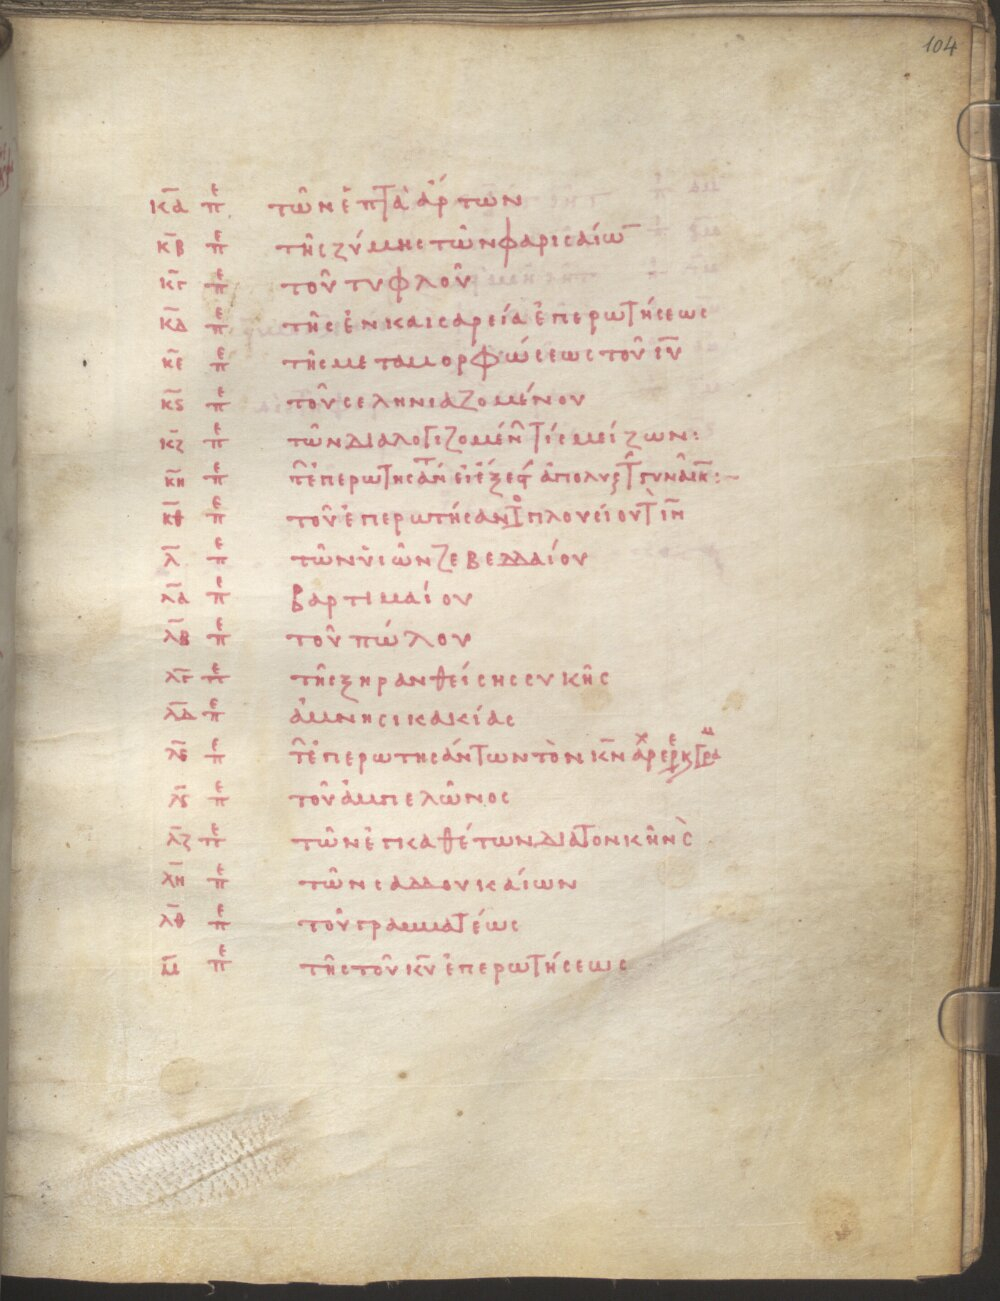 104
κα πε τῶν ἑπτὰ ἄρτων
κβ πε τῆς ζύμης τῶν φαρισαίω
κγ πε τοῦ τυφλοῦ
κδ πε τῆς ἐν καισαρεία ἐπερωτήσεως
κε πε τῆς μεταμορφώσεως τοῦ ιυ
κς πε τοῦ σεληνιαζομένου
κζ πε τῶν διαλογιζομέν τίς μείζων:
κη πε ἐπερωτησάν εἰ ἔξες ἀπολυς γυναικ:
κθ πε τοῦ ἐπερωτήσαντο πλουσίου τ ιν
λ πε τῶν υἱῶν ζεβεδαίου
λα πε βαρτιμαίου
λβ πε τοῦ πώλου
λγ πε τῆς ξηρανθείσης συκῆς
λδ πε ἀμνησικακίας
λε πε ἐπερωτησάντων τὸν κν ἀρχ
λς πε τοῦ ἀμπελῶνος
λζ πε τῶν ἐγκαθέτων διὰ τον κῆνς
λη πε τῶν σαδουκαίων
λθ πε τοῦ γραμματέως
μ πε τῆς τοῦ κυ ἐπερωτήσεως